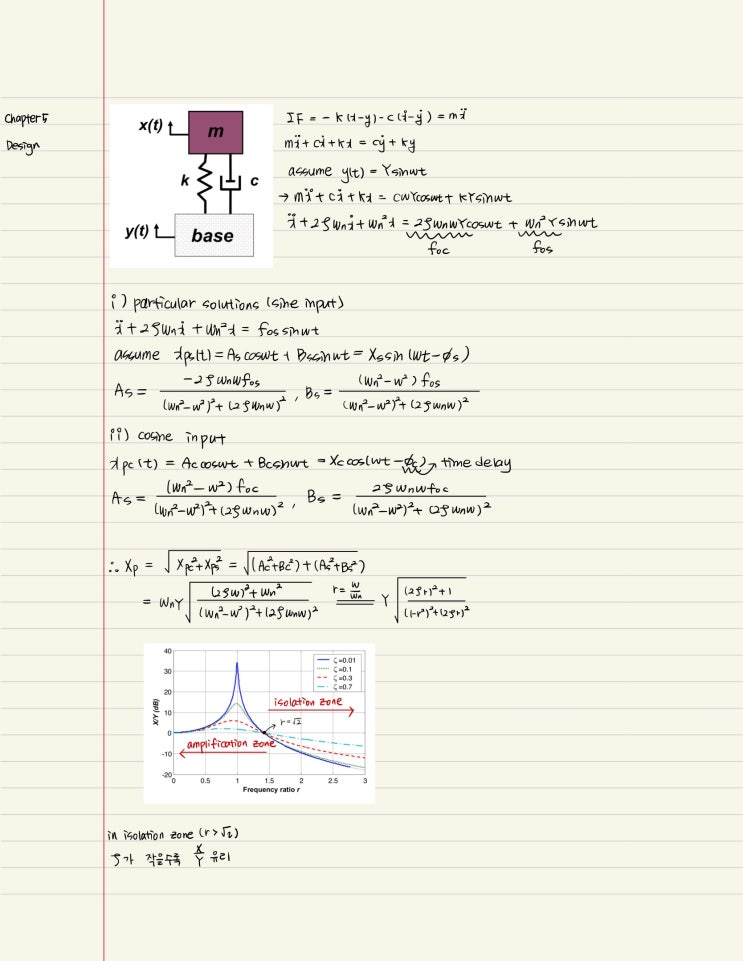 Chapter 5
Design
x(t)
m
k
c
y(t)
base
ΣF = -k(x-y)-c(ẋ-ẏ) = mẍ
mẍ+cẋ+kx = cẏ+ky
assume y(t) = Ysinwt
→ mẍ+cẋ+kx = cwYcoswt+kYsinwt
ẍ+2ζwnẋ+wn²x = 2ζwnwYcoswt + wn²Ysinwt
foc
fos
i) particular solutions (sine input)
ẍ+2ζwnẋ+wn²x = fos sinwt
assume xps(t) = As coswt + Bs sinwt = Xs sin(wt-φs)
As = -2ζwnwfos / (wn²-w²)²+(2ζwnw)² , Bs = (wn²-w²)fos / (wn²-w²)²+(2ζwnw)²
ii) cosine input
xpc(t) = Ac coswt + Bc sinwt = Xc cos(wt-φc) → time delay
As = (wn²-w²)foc / (wn²-w²)²+(2ζwnw)² , Bs = 2ζwnwfoc / (wn²-w²)²+(2ζwnw)²
∴ Xp = √(Xpc²+Xps²) = √((Ac²+Bc²)+(As²+Bs²))
= wnY√((2ζw)²+wn² / (wn²-w²)²+(2ζwnw)²) r=w/wn = Y√((2ζr)²+1 / (1-r²)²+(2ζr)²)
40
30
20
10
0
-10
-20
X/Y (dB)
ζ=0.01
ζ=0.1
ζ=0.3
ζ=0.7
isolation zone
r=√2
amplification zone
0 0.5 1 1.5 2 2.5 3
Frequency ratio r
in isolation zone (r>√2)
ζ가 작을수록 X/Y 유리